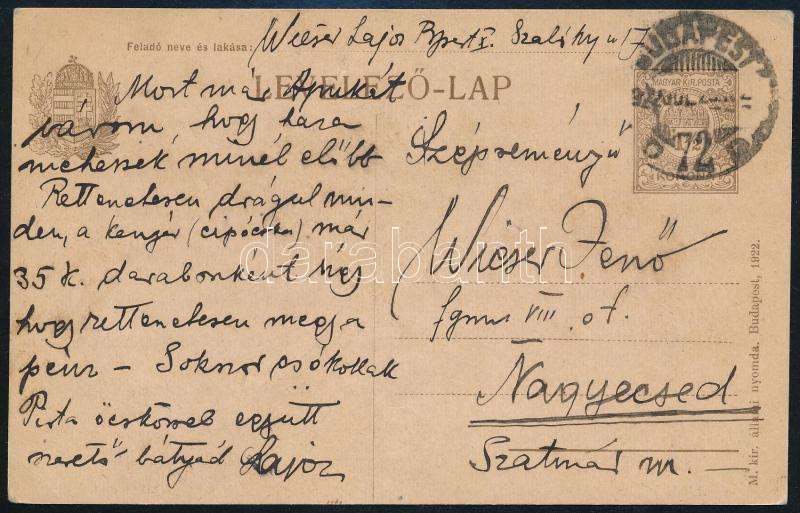 Feladó neve és lakása: Wieser Lajos Bpest X. Szaláky u 17.
LEVELEZŐ-LAP
Most már Apukát
várom, hogy haza
mehessek minél előbb
Rettenetesen drágul min-
den, a kenyér (cipócska) már
35 K. darabonként
hogy rettenetesen megy a
pénz – Sokszor csókollak
Pista öcskössel együtt
szerető bátyád Lajos
Szépreményű
Wieser Jenő
fgmn VIII. o.t.
Nagyecsed
Szatmár m. –
BUDAPEST
922 JUL
72
MAGYAR KIR. POSTA
KORONA
M. kir. állami nyomda. Budapest, 1922.
darabanth